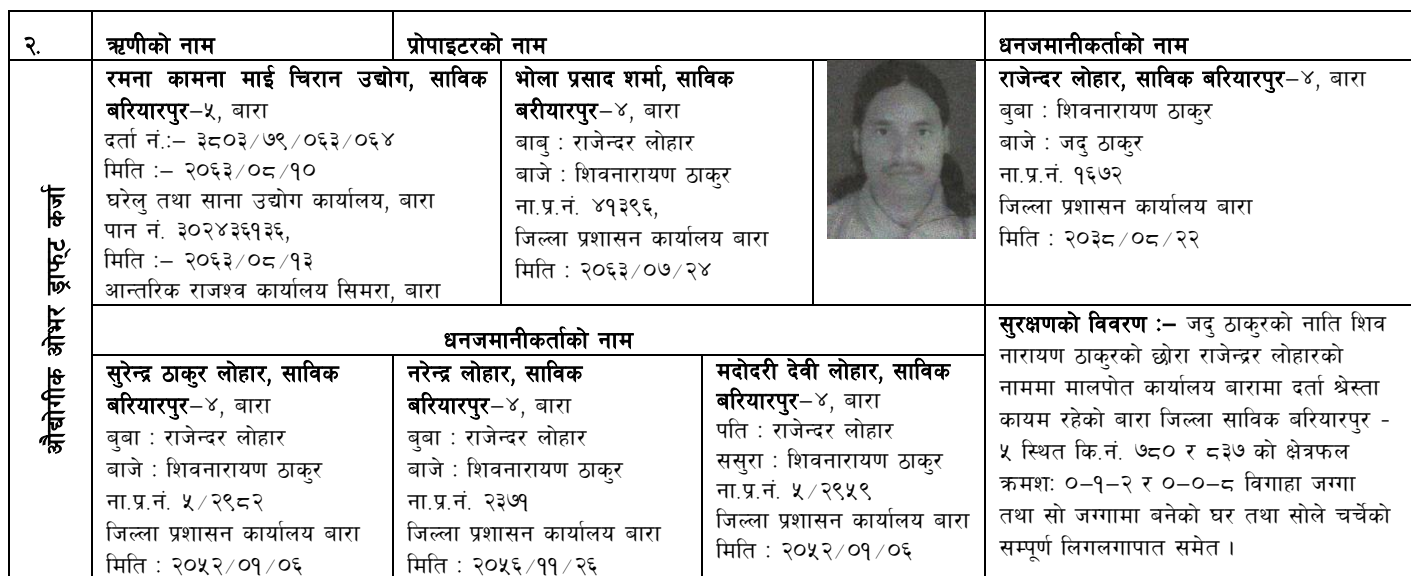 २.
ऋणीको नाम
प्रोपाइटरको नाम
धनजमानीकर्ताको नाम
औद्योगीक ओभर ड्राफ्ट कर्जा
रमना कामना माई चिरान उद्योग, साविक
बरियारपुर–५, बारा
दर्ता नं.:– ३८०३/७९/०६३/०६४
मिति :– २०६३/०८/१०
घरेलु तथा साना उद्योग कार्यालय, बारा
पान नं. ३०२४३६१३६,
मिति :– २०६३/०८/१३
आन्तरिक राजश्व कार्यालय सिमरा, बारा
भोला प्रसाद शर्मा, साविक
बरीयारपुर–४, बारा
बाबु : राजेन्दर लोहार
बाजे : शिवनारायण ठाकुर
ना.प्र.नं. ४१३९६,
जिल्ला प्रशासन कार्यालय बारा
मिति : २०६३/०७/२४
राजेन्दर लोहार, साविक बरियारपुर–४, बारा
बुबा : शिवनारायण ठाकुर
बाजे : जदु ठाकुर
ना.प्र.नं. १६७२
जिल्ला प्रशासन कार्यालय बारा
मिति : २०३८/०८/२२
धनजमानीकर्ताको नाम
सुरेन्द्र ठाकुर लोहार, साविक
बरियारपुर–४, बारा
बुबा : राजेन्दर लोहार
बाजे : शिवनारायण ठाकुर
ना.प्र.नं. ५/२९८२
जिल्ला प्रशासन कार्यालय बारा
मिति : २०५२/०१/०६
नरेन्द्र लोहार, साविक
बरियारपुर–४, बारा
बुबा : राजेन्दर लोहार
बाजे : शिवनारायण ठाकुर
ना.प्र.नं. २३७१
जिल्ला प्रशासन कार्यालय बारा
मिति : २०५६/११/२६
मदोदरी देवी लोहार, साविक
बरियारपुर–४, बारा
पति : राजेन्दर लोहार
ससुरा : शिवनारायण ठाकुर
ना.प्र.नं. ५/२९५९
जिल्ला प्रशासन कार्यालय बारा
मिति : २०५२/०१/०६
सुरक्षणको विवरण :– जदु ठाकुरको नाति शिव
नारायण ठाकुरको छोरा राजेन्द्रर लोहारको
नाममा मालपोत कार्यालय बारामा दर्ता श्रेस्ता
कायम रहेको बारा जिल्ला साविक बरियारपुर -
५ स्थित कि.नं. ७८० र ८३७ को क्षेत्रफल
क्रमश: ०–१–२ र ०–०–८ विगाहा जग्गा
तथा सो जग्गामा बनेको घर तथा सोले चर्चेको
सम्पूर्ण लिगलगापात समेत ।